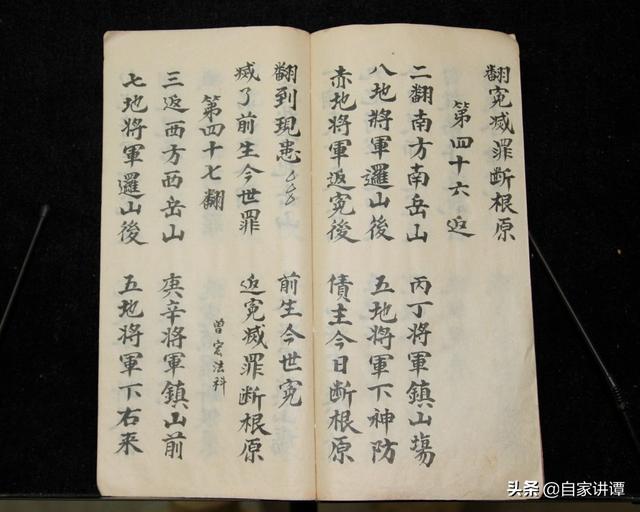 翻冤滅罪断根原
第四十六返
二翻南方南岳山 丙丁将軍鎮山塲
八地将軍邏山後 五地将軍下神防
赤地将軍返冤後 債主今日断根原
翻到現患 前生今世冤
滅了前生今世罪 返冤滅罪断根原
第四十七翻 曽宏法科
三返西方西岳山 庚辛将軍鎮山前
七地将軍邏山後 五地将軍下右来
头条 @自家讲谭